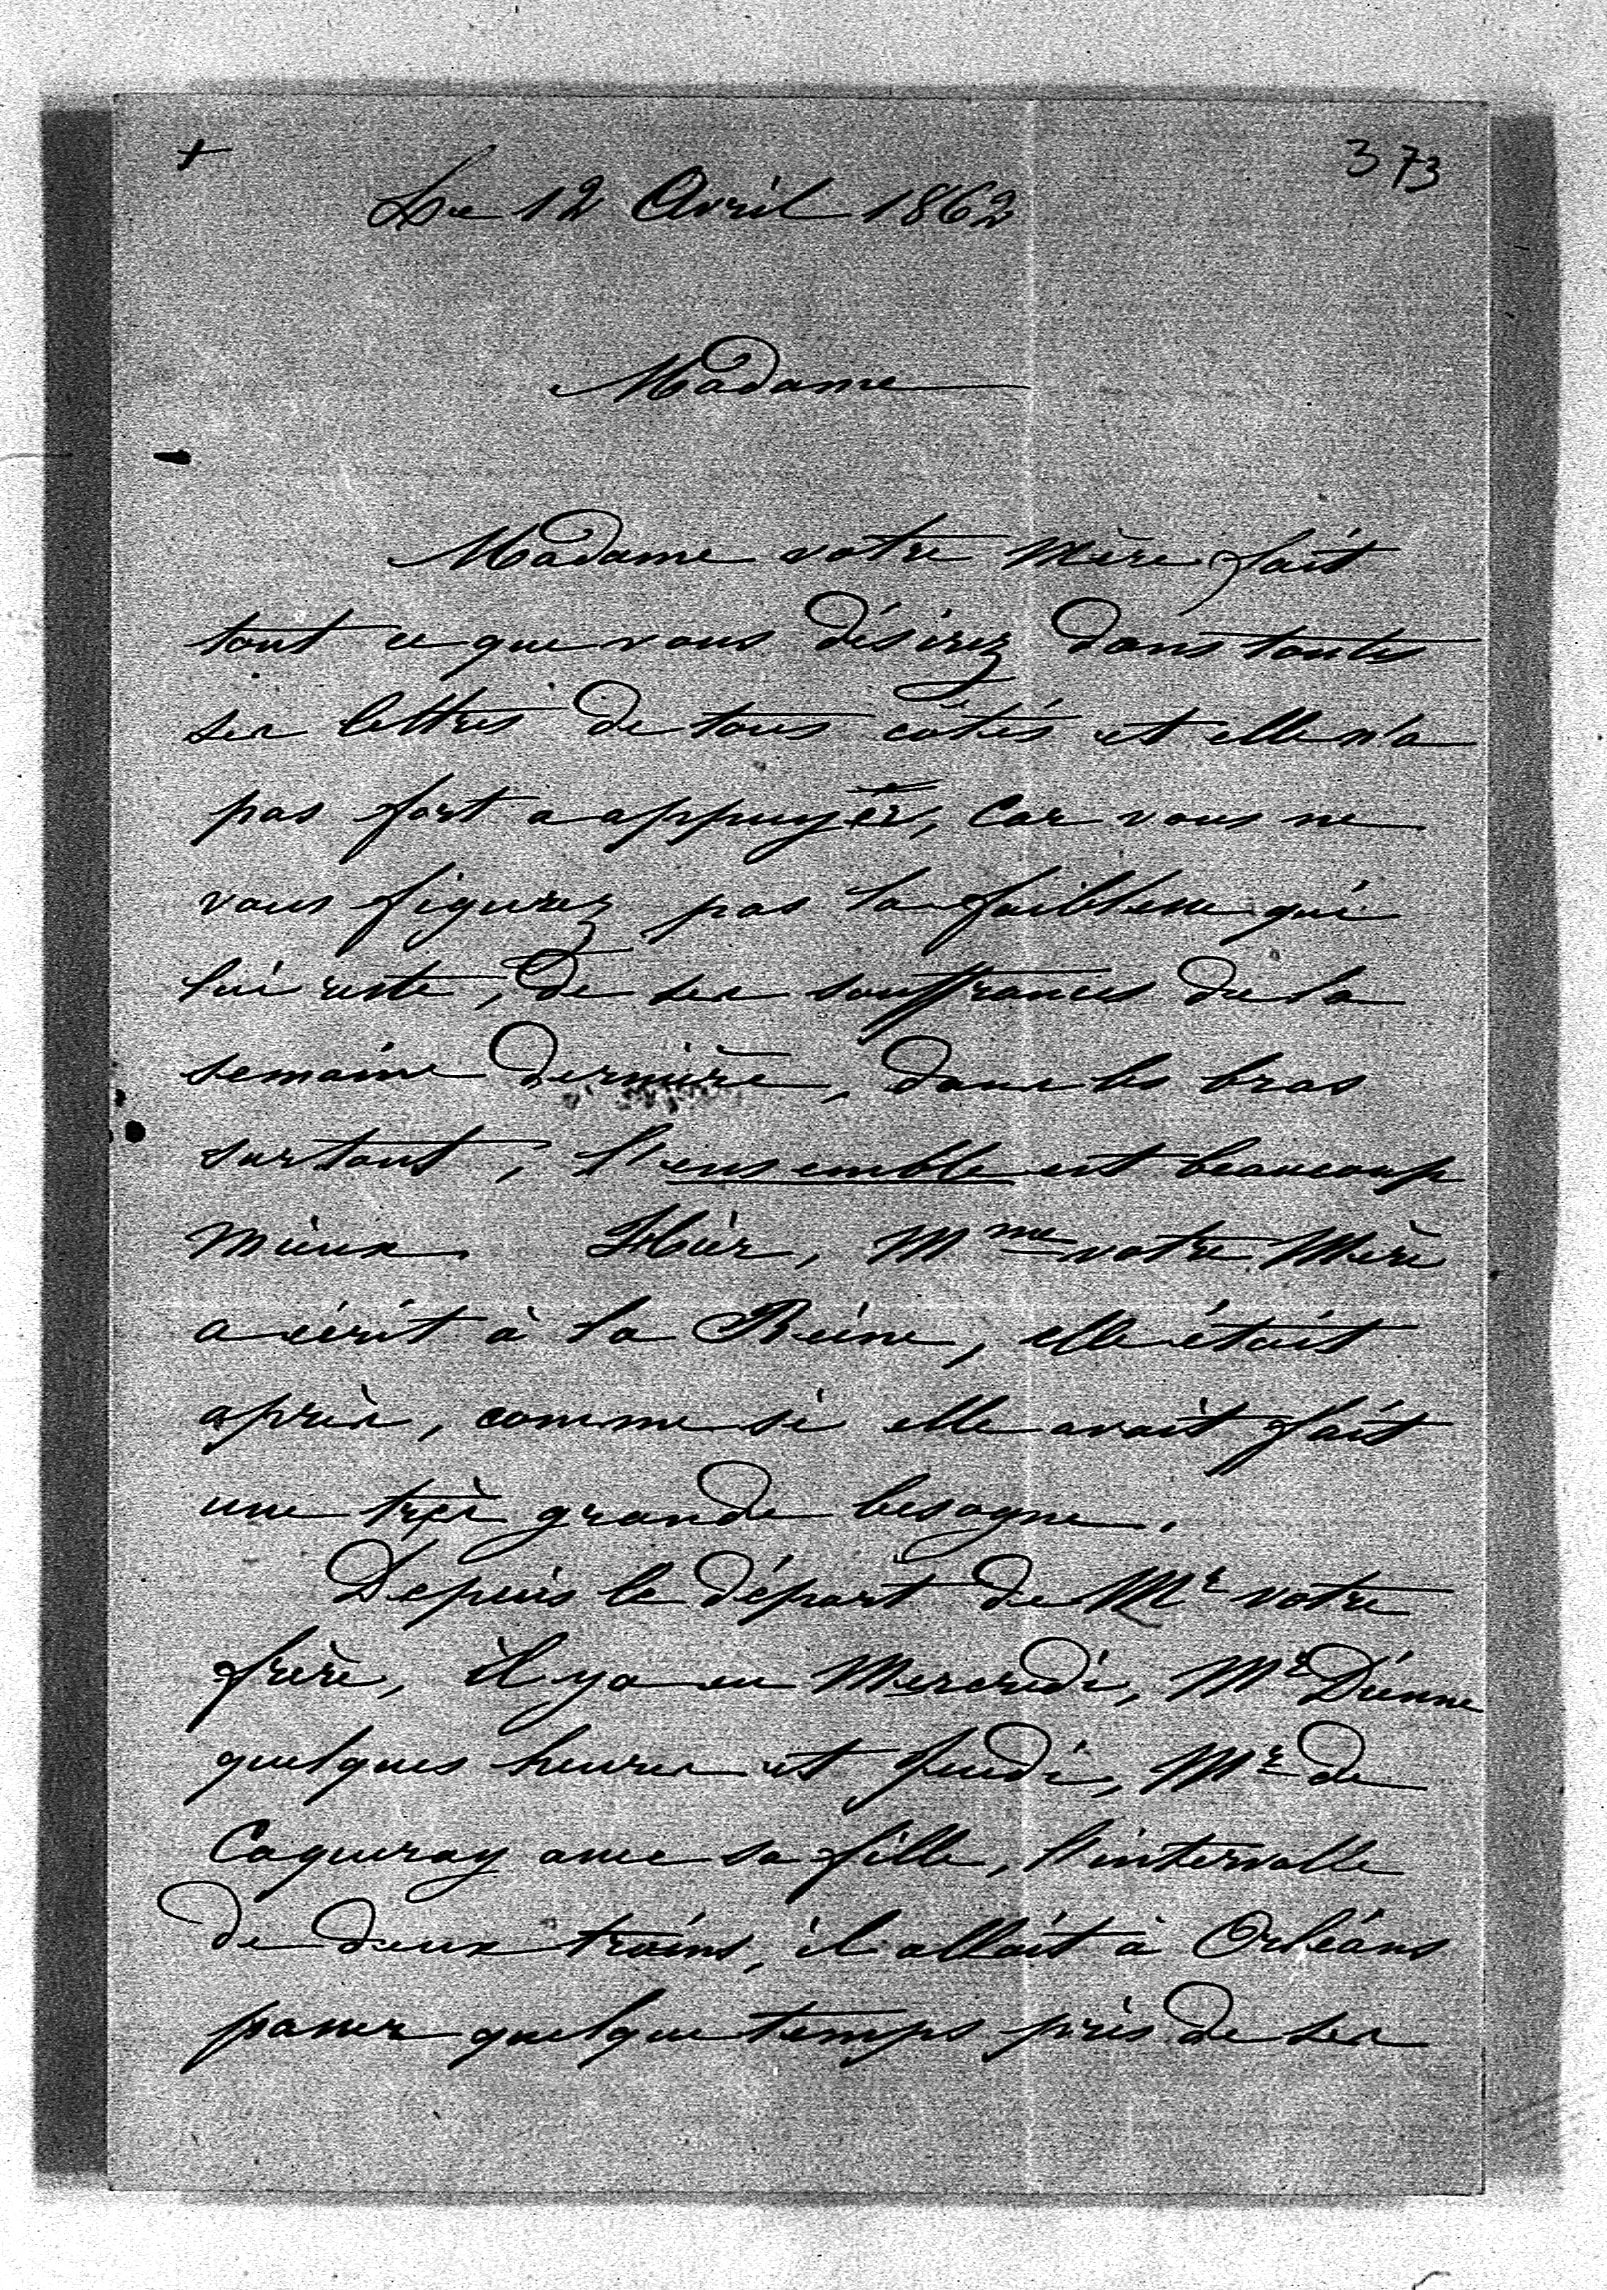 +
373
Le 12 Avril 1862
Madame
Madame votre Mère fait
tout ce que vous désirez dans toutes
ses lettres de tous côtés et elle n'a
pas fort a appuyer, car vous ne
vous figurez pas la faiblesse qui
lui reste, de ses souffrances de la
semaine dernière, dans les bras
surtout, l'ensemble est beaucoup
mieux. Hier, Mme votre Mère
a écrit à la Reine, elle était
après, comme si elle avait fait
une très grande besogne.
Depuis le départ de Mr votre
frère, il y a eu Mercredi, Mr Dienne
quelques heures et Jeudi, Mr de
Caqueray avec sa fille, l'intervalle
de deux trains, il allait à Orléans
passer quelque temps près de ses